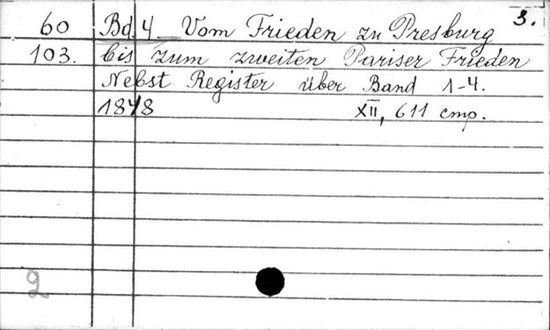 3.
60 Bd. 4 Vom Frieden zu Presburg
103. bis zum zweiten Pariser Frieden
Nebst Register über Band 1-4.
1848 XII, 611 стр.
2